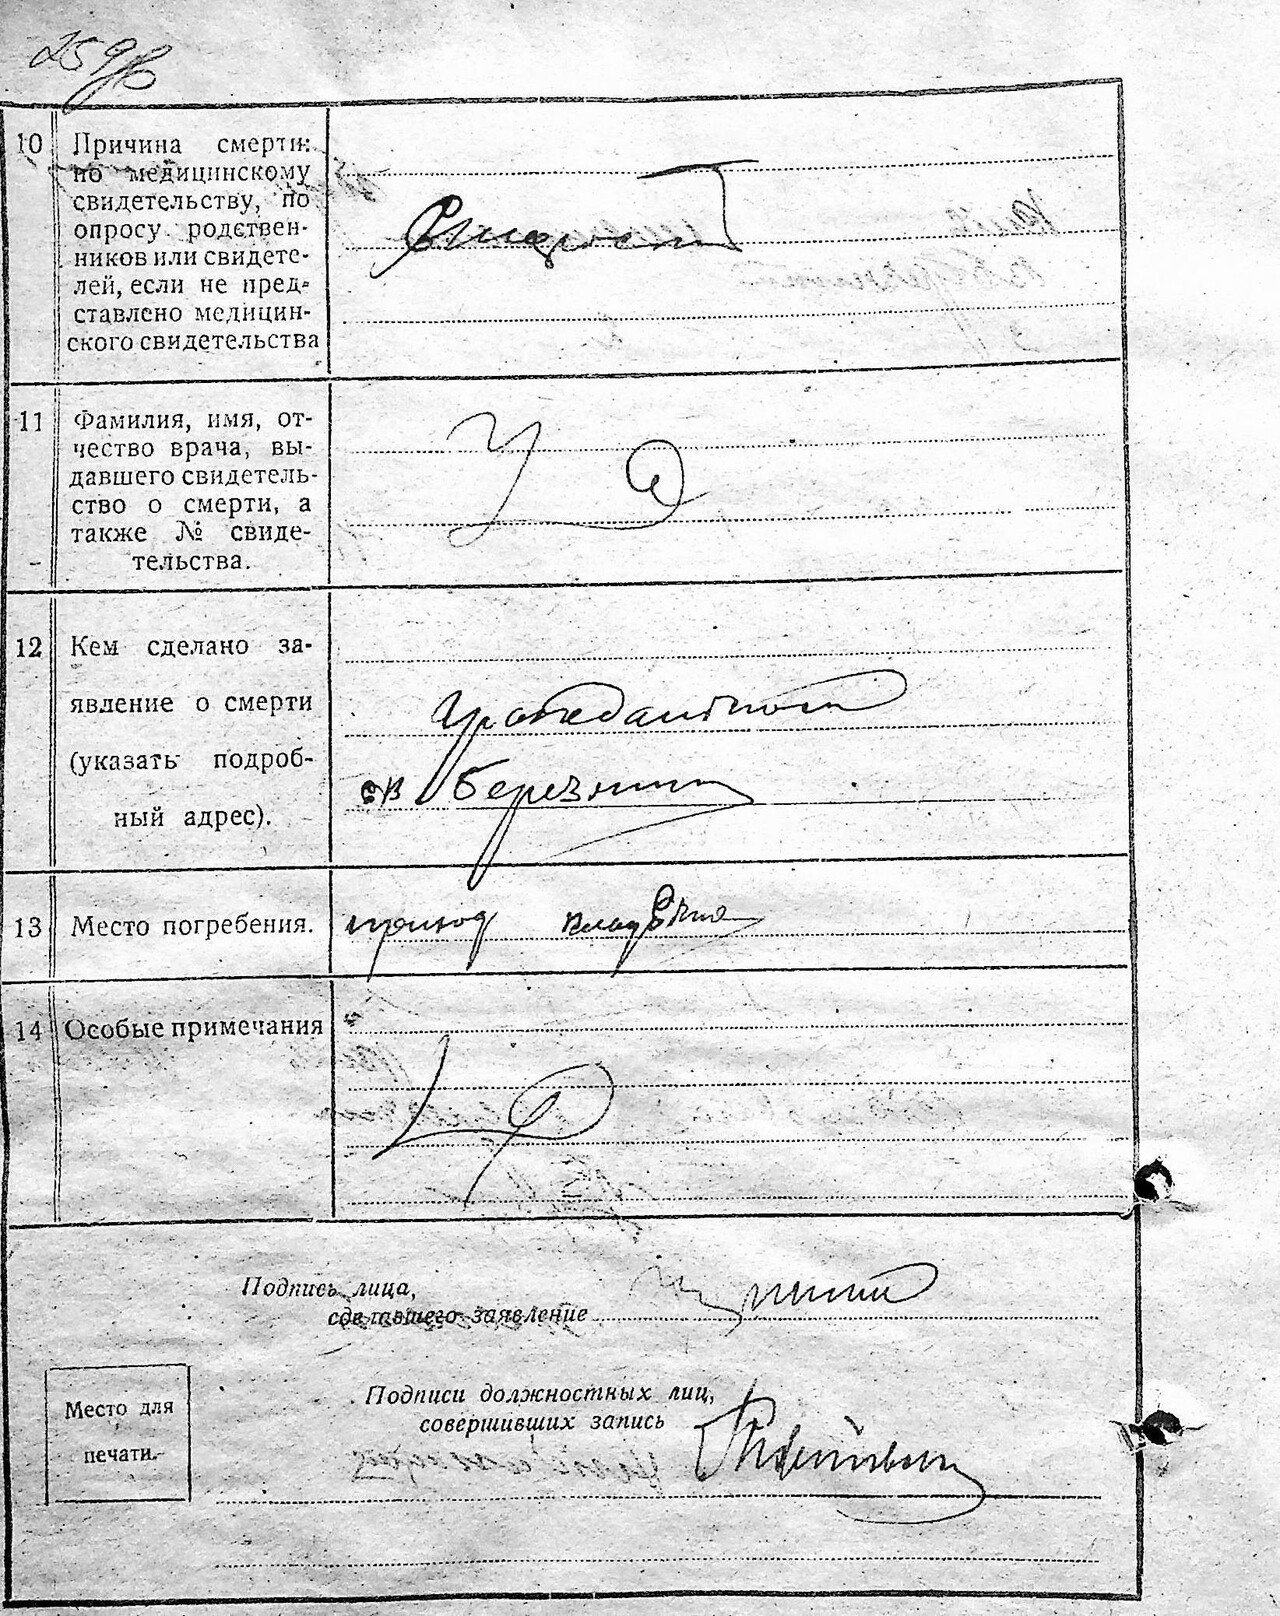 259об
10 Причина смерти:
по медицинскому
свидетельству, по
опросу родствен-
ников или свидете-
лей, если не пред-
ставлено медицин-
ского свидетельства
Старост
11 Фамилия, имя, от-
чество врача, вы-
давшего свидетель-
ство о смерти, а
также № свиде-
тельства.
12 Кем сделано за-
явление о смерти
(указать подроб-
ный адрес).
св Березники
13 Место погребения.
приход кладбище
14 Особые примечания
Подпись лица,
сделавшего заявление
Подписи должностных лиц,
совершивших запись
Место для
печати.